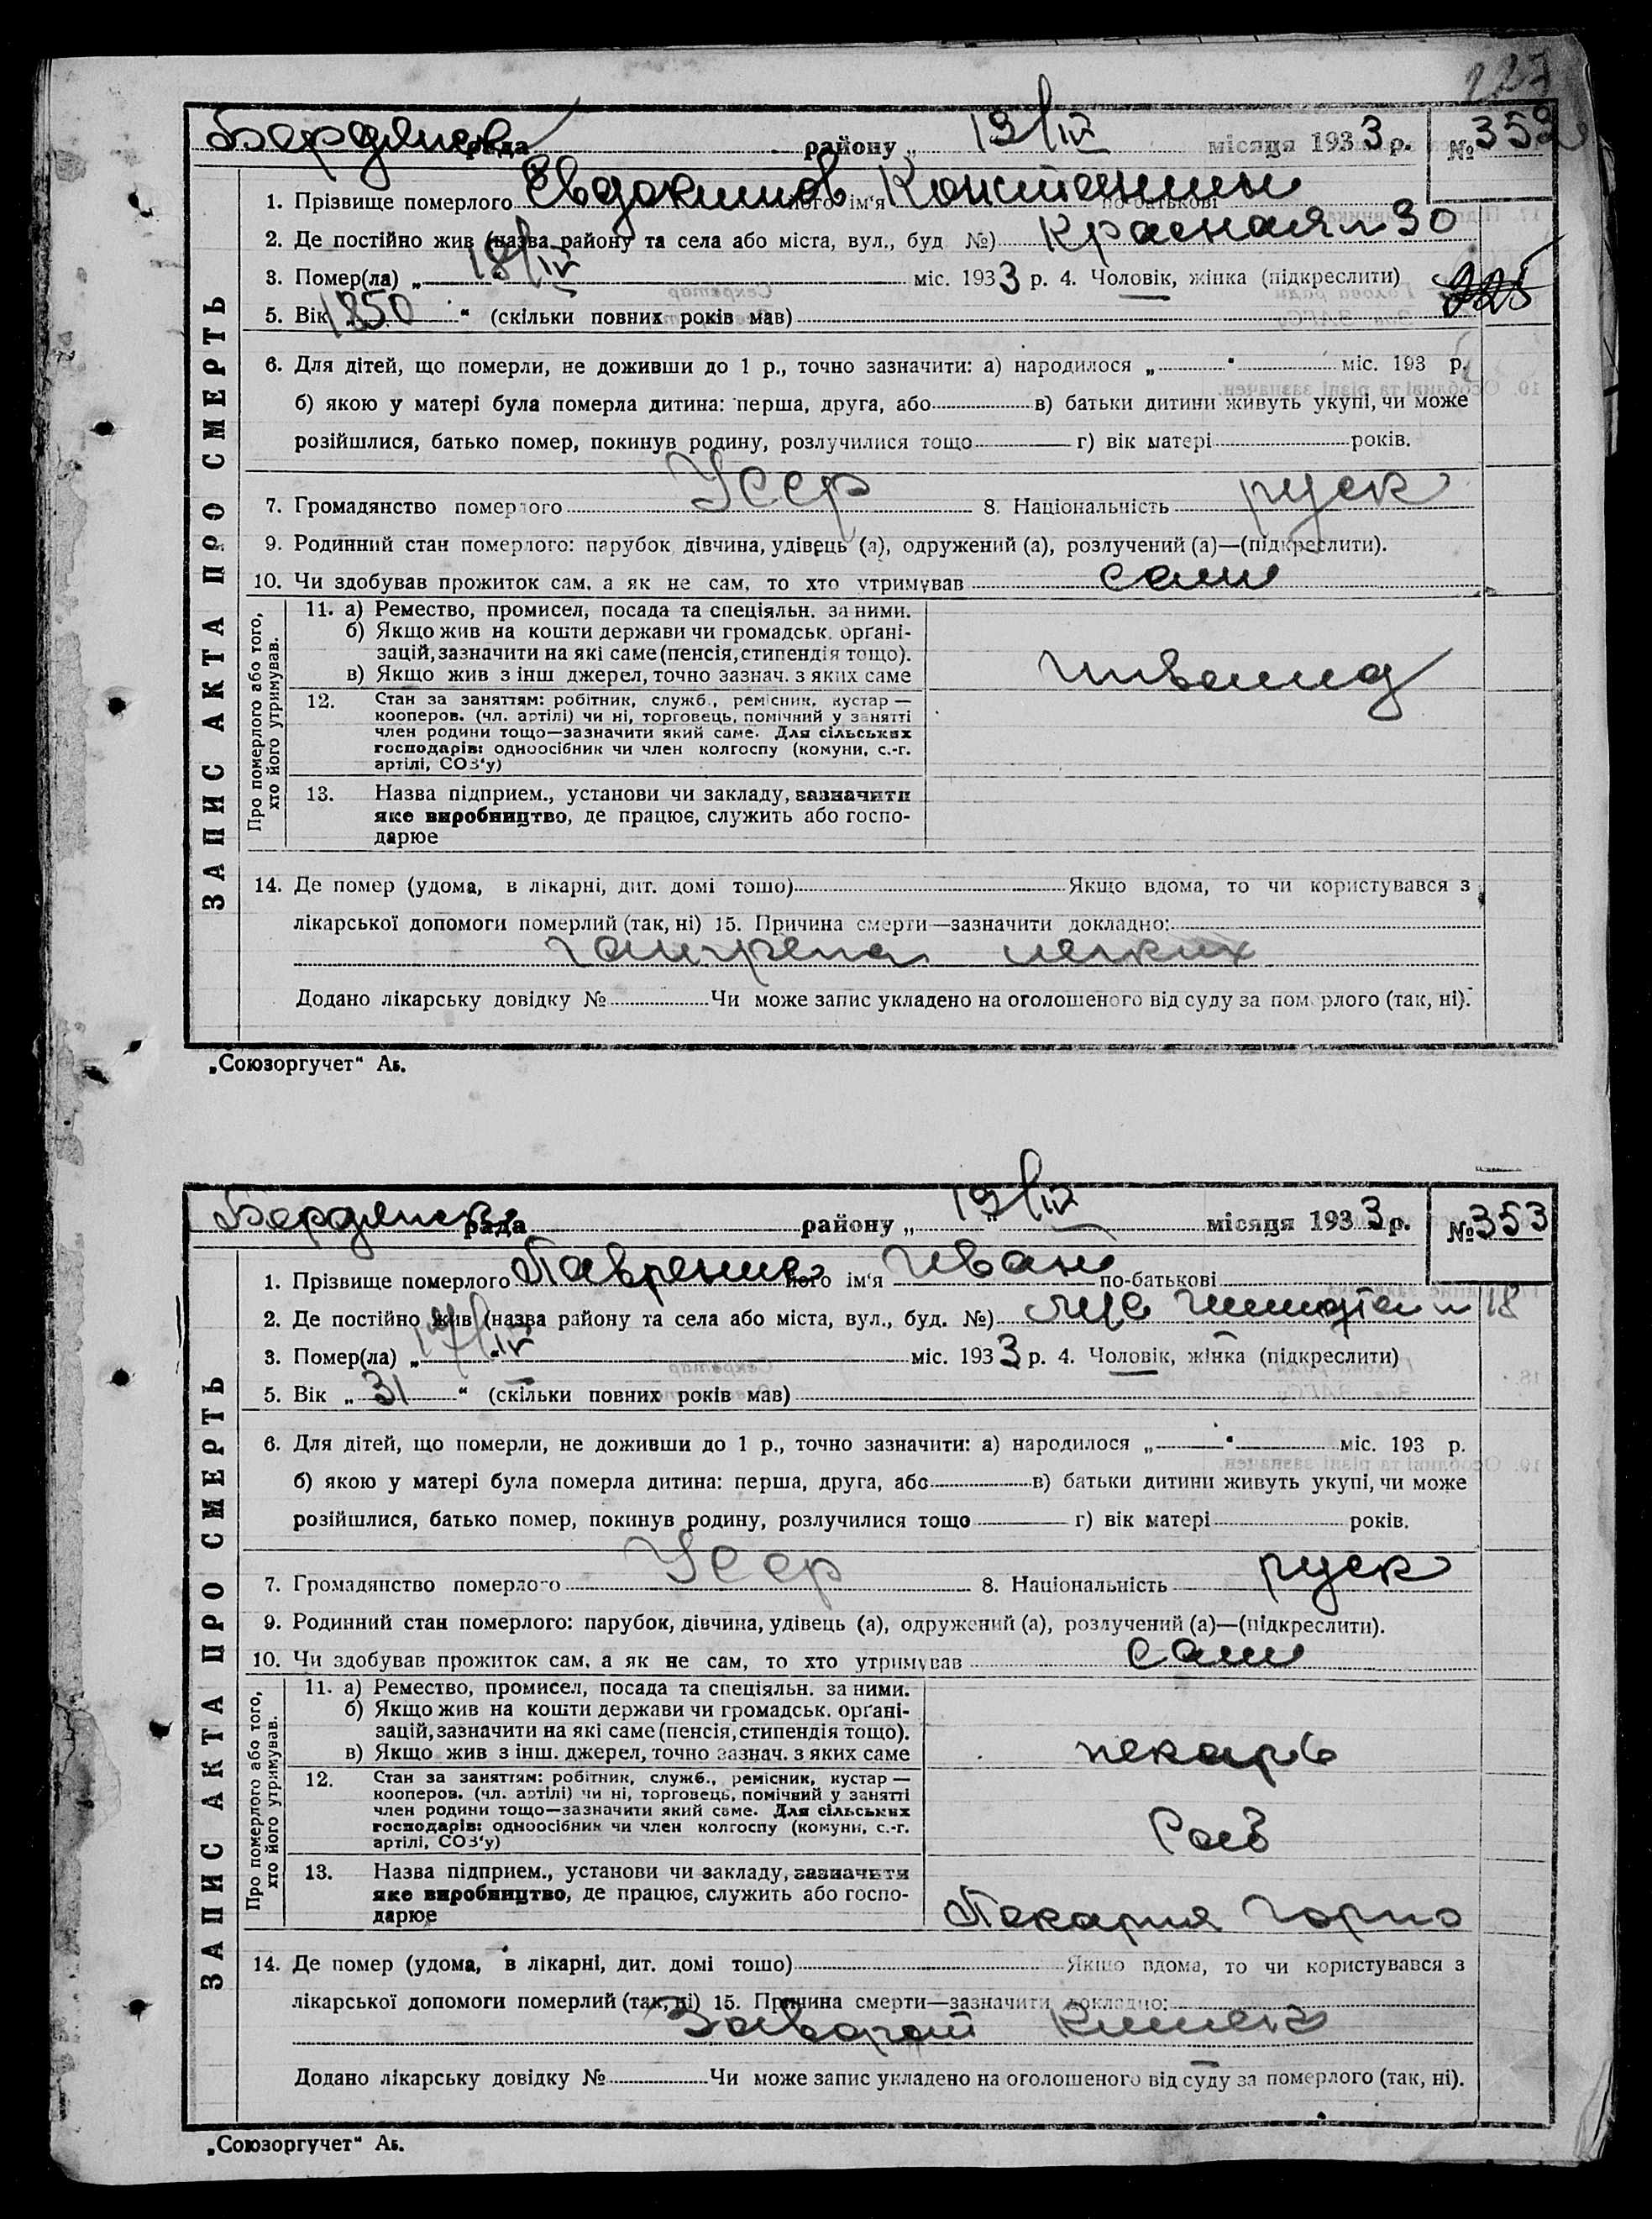 227
Бердянск рада района „ 19/IV місяця 1933 р. № 352
ЗАПИС АКТА ПРО СМЕРТЬ
1. Прізвище померлого Евдокимов його ім'я Константин по-батькові
2. Де постійно жив (назва району та села або міста, вул., буд №) Красная 30
3. Помер(ла) „ 18/IV “ міс. 1933 р. 4. Чоловік, жінка (підкреслити)
225
5. Вік 1850 “ (скільки повних років мав)
6. Для дітей, що померли, не доживши до 1 р., точно зазначити: а) народилося „ “ міс. 193 р.
б) якою у матері була померла дитина: перша, друга, або в) батьки дитини живуть укупі, чи може
розійшлися, батько помер, покинув родину, розлучилися тощо г) вік матері років.
7. Громадянство померлого Усср 8. Національність руск
9. Родинний стан померлого: парубок, дівчина, удівець (а), одружений (а), розлучений (а)—(підкреслити).
10. Чи здобував прожиток сам, а як не сам, то хто утримував сам
Про померлого або того, хто його утримував.
11. а) Ремество, промисел, посада та спеціяльн. за ними.
б) Якщо жив на кошти держави чи громадськ. органі-
зацій, зазначити на які саме (пенсія, стипендія тощо).
в) Якщо жив з інш джерел, точно зазнач. з яких саме
инвалид
12. Стан за заняттям: робітник, служб., ремісник, кустар —
кооперов. (чл. артілі) чи ні, торговець, помічний у занятті
член родини тощо—зазначити який саме. Для сільських
господарів: одноосібник чи член колгоспу (комуни, с.-г.
артілі, СОЗ'у)
13. Назва підприєм., установи чи закладу, зазначити
яке виробництво, де працює, служить або госпо-
дарює
14. Де помер (удома, в лікарні, дит. домі тощо) Якщо вдома, то чи користувався з
лікарської допомоги померлий (так, ні) 15. Причина смерти—зазначити докладно:
гангрена легких
Додано лікарську довідку № Чи може запис укладено на оголошеного від суду за померлого (так, ні).
„Союзоргучет“ Аб.
Бердянск рада району „ 19/IV місяця 1933 р. № 353
ЗАПИС АКТА ПРО СМЕРТЬ
1. Прізвище померлого його ім'я Иван по-батькові
2. Де постійно жив (назва району та села або міста, вул., буд. №) Шмидта 18
3. Помер(ла) „ 17/IV “ міс. 1933 р. 4. Чоловік, жінка (підкреслити)
5. Вік „ 31 “ (скільки повних років мав)
6. Для дітей, що померли, не доживши до 1 р., точно зазначити: а) народилося „ “ міс. 193 р.
б) якою у матері була померла дитина: перша, друга, або в) батьки дитини живуть укупі, чи може
розійшлися, батько помер, покинув родину, розлучилися тощо г) вік матері років.
7. Громадянство померлого Усср 8. Національність руск
9. Родинний стан померлого: парубок, дівчина, удівець (а), одружений (а), розлучений (а)—(підкреслити).
10. Чи здобував прожиток сам, а як не сам, то хто утримував сам
Про померлого або того, хто його утримував.
11. а) Ремество, промисел, посада та спеціяльн. за ними.
б) Якщо жив на кошти держави чи громадськ. органі-
зацій, зазначити на які саме (пенсія, стипендія тощо).
в) Якщо жив з інш. джерел, точно зазнач. з яких саме
пекарь
12. Стан за заняттям: робітник, служб., ремісник, кустар —
кооперов. (чл. артілі) чи ні, торговець, помічний у занятті
член родини тощо—зазначити який саме. Для сільських
господарів: одноосібник чи член колгоспу (комуни, с.-г.
артілі, СОЗ'у)
13. Назва підприєм., установи чи закладу, зазначити
яке виробництво, де працює, служить або госпо-
дарює
Пекарня
14. Де помер (удома, в лікарні, дит. домі тощо) Якщо вдома, то чи користувався з
лікарської допомоги померлий (так, ні) 15. Причина смерти—зазначити докладно:
Заворот кишек
Додано лікарську довідку № Чи може запис укладено на оголошеного від суду за померлого (так, ні).
„Союзоргучет“ Аб.